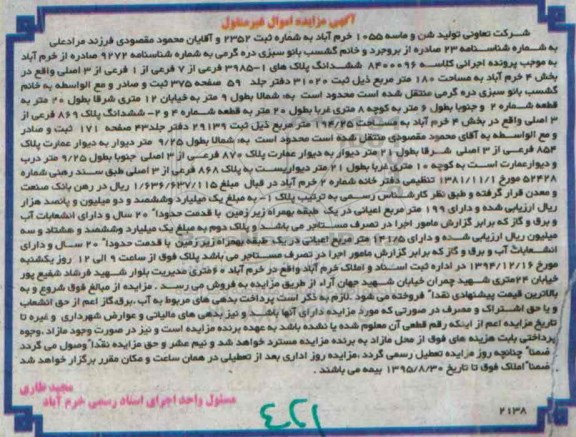 آگهی مزایده اموال غیرمنقول
شرکت تعاونی تولید شن و ماسه ۱۰۵۵ خرم آباد به شماره ثبت ۲۳۵۲ و آقایان محمود مقصودی فرزند مرادعلی
به شماره شناسنامه ۲۳ صادره از بروجرد و خانم گشسب بانو سبزی دره گرمی به شماره شناسنامه ۹۲۷۲ صادره از خرم آباد
به موجب پرونده اجرائی کلاسه ۸۴۰۰۰۹۶ ششدانگ پلاک های ۱-۳۹۸۵ فرعی از ۷ فرعی از ۱ فرعی از ۳ اصلی واقع در
بخش ۴ خرم آباد به مساحت ۱۸۰ متر مربع ذیل ثبت ۳۱۰۲۰ دفتر جلد ۵۹ صفحه ۳۷۵ ثبت و صادر و مع الواسطه به خانم
گشسب بانو سبزی دره گرمی منتقل شده است محدود است به: شمالا بطول ۹ متر به خیابان ۱۲ متری شرقا بطول ۲۰ متر به
قطعه شماره ۲ و جنوبا بطول ۶ متر به کوچه ۸ متری غربا بطول ۲۰ متر به قطعه شماره ۴ و ۲- ششدانگ پلاک ۸۶۹ فرعی از
۳ اصلی واقع در بخش ۴ خرم آباد به مساحت ۱۹۴/۲۵ متر مربع ذیل ثبت ۲۹۱۳۹ دفتر جلد ۴۳ صفحه ۱۷۱ ثبت و صادر
و مع الواسطه به آقای محمود مقصودی منتقل شده است محدود است به: شمالا بطول ۹/۲۵ متر دیوار به دیوار عمارت پلاک
۸۵۴ فرعی از ۳ اصلی شرقا بطول ۲۱ متر دیوار به دیوار عمارت پلاک ۸۷۰ فرعی از ۳ اصلی جنوبا بطول ۹/۲۵ متر درب
و دیوار عمارت است به کوچه ۱۰ متری غربا بطول ۲۱ متر دیواریست به پلاک ۸۶۸ فرعی از ۳ اصلی طبق سند رهنی شماره
۵۲۴۲۸ مورخ ۱۳۸۱/۱۱/۱ تنظیمی دفتر خانه شماره ۲ خرم آباد در قبال مبلغ ۱/۶۳۶/۶۳۷/۱۱۵ ریال در رهن بانک صنعت
و معدن قرار گرفته و طبق نظر کارشناس رسمی به ترتیب پلاک ۱- به مبلغ یک میلیارد وششصد و دو میلیون و پانصد هزار
ریال ارزیابی شده و دارای ۱۹۹ متر مربع اعیانی در یک طبقه بهمراه زیر زمین با قدمت حدودا" ۲۰ سال و دارای انشعابات آب
و برق و گاز که برابر گزارش مامور اجرا در تصرف مستاجر می باشند و پلاک دوم به مبلغ یک میلیارد وششصد و هشتاد و سه
میلیون ریال ارزیابی شده و دارای ۱۴۱/۵ متر مربع اعیانی در یک طبقه بهمراه زیر زمین با قدمت حدودا" ۲۰ سال و دارای
انشعابات آب و برق و گاز که برابر گزارش مامور اجرا در تصرف مستاجر می باشد پلاک فوق از ساعت ۹ الی ۱۲ روز یکشنبه
مورخ ۱۳۹۴/۱۲/۱۶ در اداره ثبت اسناد و املاک خرم آباد واقع در خرم آباد ۶۰متری مدیریت بلوار شهید فرشاد شفیع پور
خیابان ۲۴متری شهید چمران خیابان شهید جهان آراء از طریق مزایده به فروش می رسد . مزایده از مبالغ فوق شروع و به
بالاترین قیمت پیشنهادی نقدا" فروخته می شود .لازم به ذکر است پرداخت بدهی های مربوط به آب،برق،گاز اعم از حق انشعاب
و یا حق اشتراک و مصرف در صورتی که مورد مزایده دارای آنها باشد و نیز بدهی های مالیاتی و عوارض شهرداری و غیره تا
تاریخ مزایده اعم از اینکه رقم قطعی آن معلوم شده یا نشده باشد به عهده برنده مزایده است و نیز در صورت وجود مازاد ،وجوه
پرداختی بابت هزینه های فوق از محل مازاد به برنده مزایده مسترد خواهد شد و نیم عشر و حق مزایده نقدا"وصول می گردد
ضمنا" چنانچه روز مزایده تعطیل رسمی گردد،مزایده روز اداری بعد از تعطیلی در همان ساعت و مکان مقرر برگزار خواهد شد
ضمنا" املاک فوق تا تاریخ ۱۳۹۵/۸/۳۰ بیمه می باشند .
مجید طاری
مسئول واحد اجرای اسناد رسمی خرم آباد
۲۱۳۸